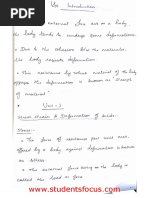 Introduction
external force acts on a body,
the body tends to undergo some deformations.
Due to the cohesion b/w the molecules,
the body resists deformation
This resistance by which material of the body
opposes the deformation is known as Strength
of material
Unit - I
Stress, strain & Deformation of Solids.
Stress:-
The force of resistance per unit area,
offered by a body against deformation is known
as stress.
The external force acting on the body is
called the load or force
www.studentsfocus.com